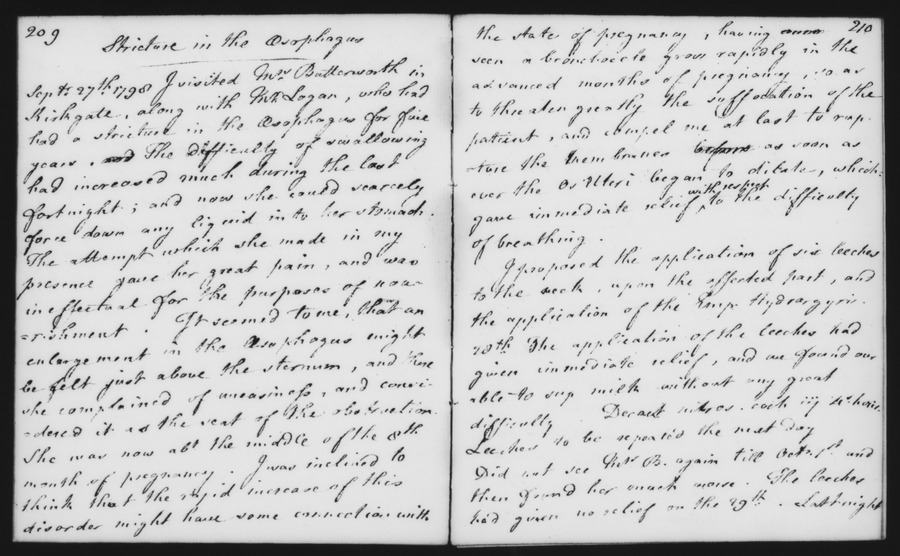 209
Stricture in the Oesophagus
Septr. 27th. 1798 I visited Mrs Butterworth in
Kirkgate, along with Mr. Logan, who had
had a stricture in the Oesophagus for five
years, and The Difficulty of swallowing
had increased much during the last
fortnight; and now she could scarcely
force down any liquid into her stomach.
The attempt which she made in my
presence gave her great pain, and was
ineffectual for the purposes of nou-
=rishment. It seemed to me, that an
enlargement in the Oesophagus might
be felt just above the sternum, and there
she complained of uneasiness, and consi-
=dered it as the seat of the obstruction.
She was now abt the middle of the 8th
month of pregnancy. I was inclined to
think that the rapid increase of this
disorder might have some connection with
210
the state of pregnancy, having
seen a bronchocele grow rapidly in the
advanced months of pregnancy, so as
to threaten greatly the suffocation of the
patient, and compel me at last to rup-
=ture the Membranes before as soon as
ever the Os Uteri began to dilate, which
gave immediate relief with respect to the difficulty
of breathing.
I proposed the application of six leeches
to the neck, upon the affected part, and
the application of the Emp. Hydrargyri.
28th The application of the leeches had
given immediate relief, and we found our
able to sup milk without any great
difficulty. Decoct nitros. coch iij 4tis horis.
Leeches to be repeated the next day
Did not see Mrs B. again till Octr. 1st. and
then found her much worse. The leeches
had given no relief on the 29th. Last night